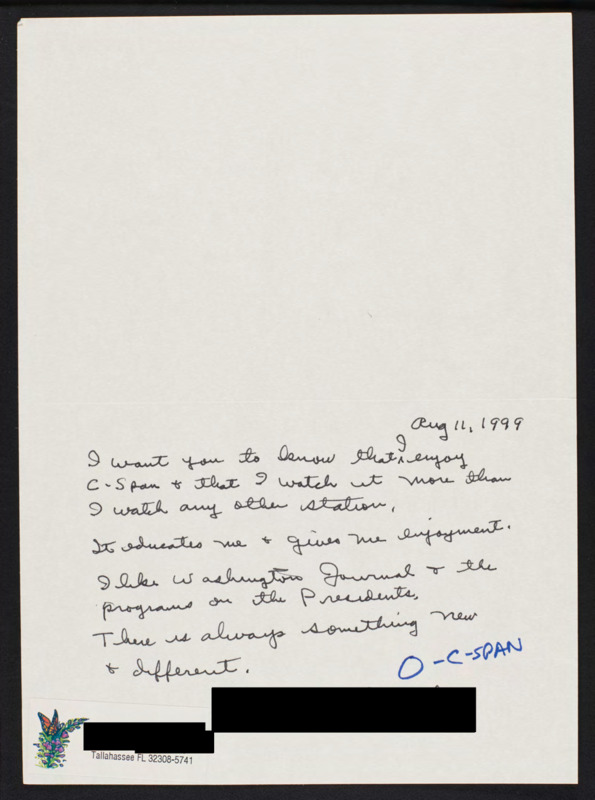 Aug 11, 1999
I want you to know that I enjoy
C-Span & that I watch it more than
I watch any other station.
It educates me & gives me enjoyment.
I like Washington Journal & the
programs on the Presidents.
There is always something new
& different.
O-C-SPAN
Tallahassee FL 32308-5741